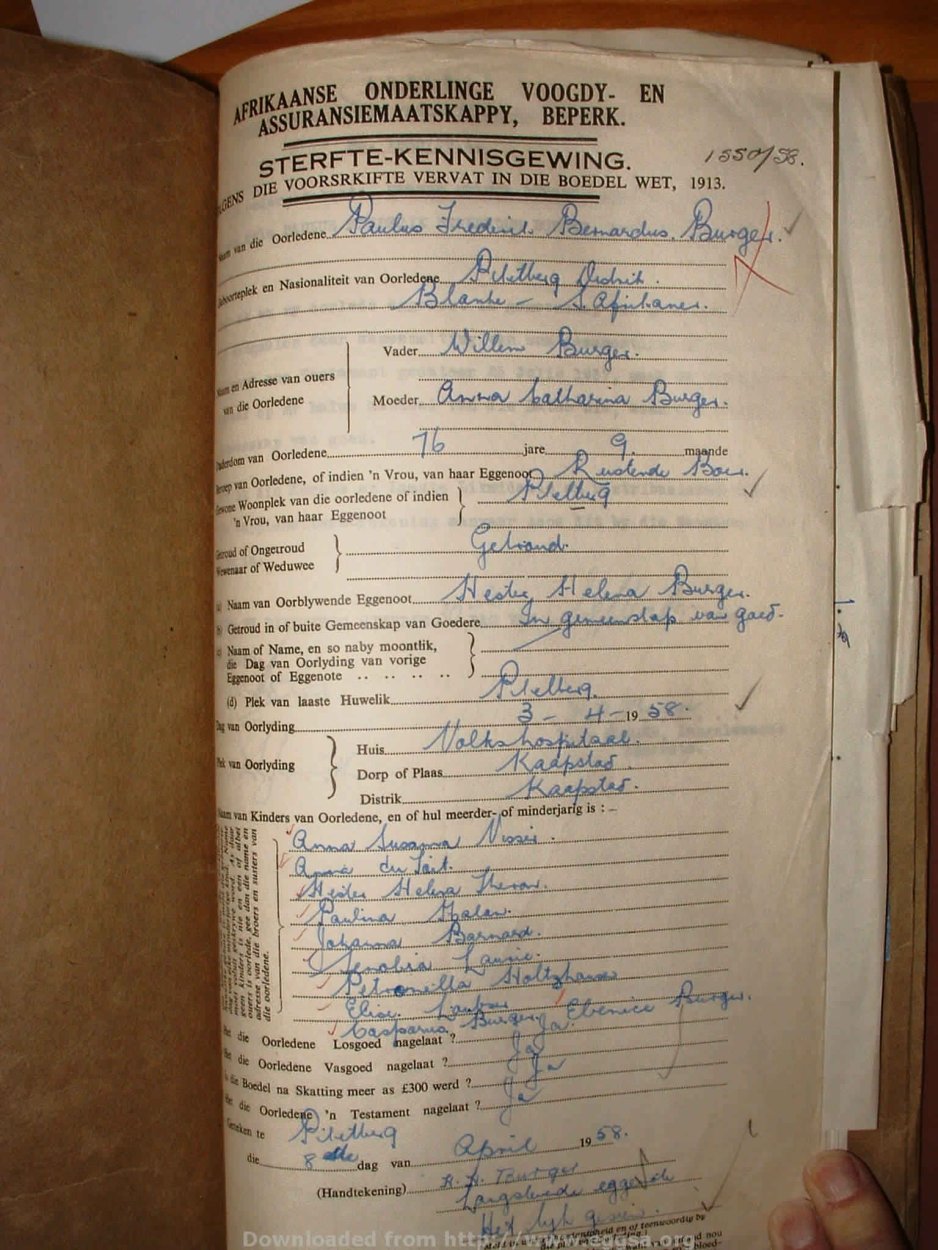 AFRIKAANSE ONDERLINGE VOOGDY- EN
ASSURANSIEMAATSKAPPY, BEPERK.
STERFTE-KENNISGEWING.
1550/58.
DIE VOORSRKIFTE VERVAT IN DIE BOEDEL WET, 1913.
van die Oorledene Paulus Frederik Bernardus Burger.
en Nasionaliteit van Oorledene Piketberg Distrik.
Blanke - S. Afrikaner.
Vader Willem Burger.
en Adresse van ouers
van die Oorledene
Moeder Anna Catharina Burger.
van Oorledene 76 jare 9 maande
van Oorledene, of indien 'n Vrou, van haar Eggenoot Rustende Boer.
Woonplek van die oorledene of indien
'n Vrou, van haar Eggenoot
Piketberg
of Ongetroud
of Weduwee
Getroud.
Naam van Oorblywende Eggenoot Hester Helena Burger.
Getroud in of buite Gemeenskap van Goedere In gemeenskap van goed.
Naam of Name, en so naby moontlik,
die Dag van Oorlyding van vorige
Eggenoot of Eggenote
(d) Plek van laaste Huwelik Piketberg.
van Oorlyding 3 - 4 - 1958.
van Oorlyding
Huis Volkshospitaal.
Dorp of Plaas Kaapstad.
Distrik Kaapstad.
van Kinders van Oorledene, en of hul meerder- of minderjarig is : —
Anna Susanna Visser.
Anna du Toit.
Hester Helena Theron.
Paulina Malan.
Johanna Barnard.
Zenobia Laurie.
Petronella Holtzhausen
Elise Loubser
Casparus Burger, Ebenice Burger.
die Oorledene Losgoed nagelaat ? Ja
die Oorledene Vasgoed nagelaat ? Ja
die Boedel na Skatting meer as £300 werd ? Ja
die Oorledene 'n Testament nagelaat ? Ja
te Piketberg
die 8ste dag van April 1958.
(Handtekening) H. H. Burger
Langslewende eggenote
Downloaded from http://www.eggsa.org